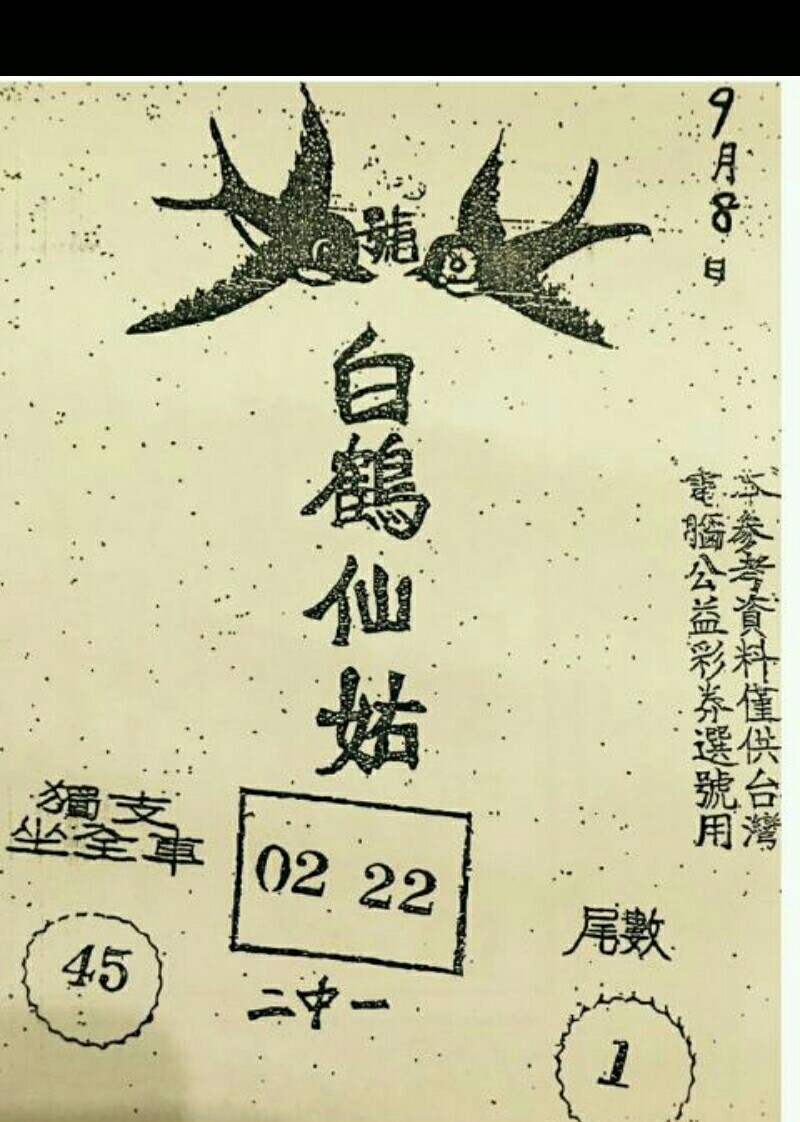 9月8日
號
白鶴仙姑
本參考資料僅供台灣
電腦公益彩券選號用
獨支
坐全車
02 22
尾數
45
二中一
1